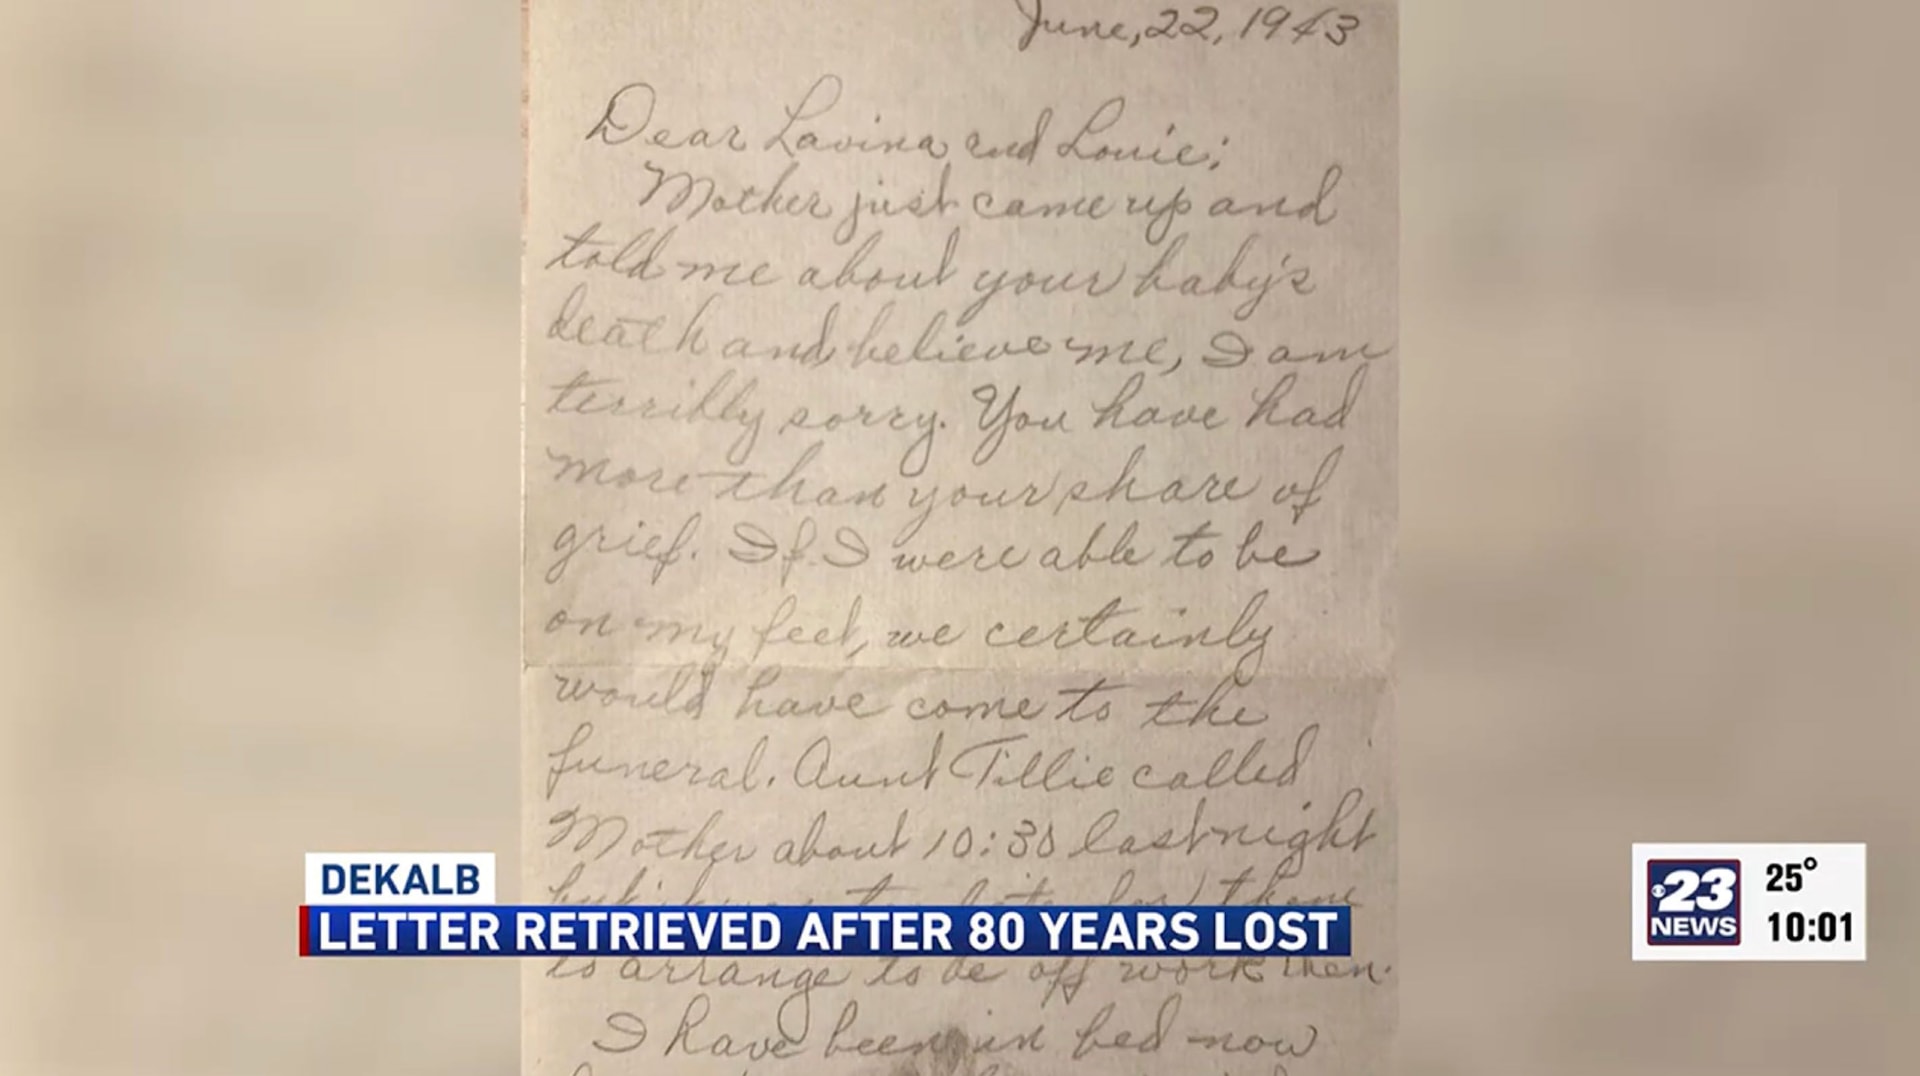 June, 22, 1943
Dear Lavina and Louie;
Mother just came up and
told me about your baby's
death and believe me, I am
terribly sorry. You have had
more than your share of
grief. If I were able to be
on my feet, we certainly
would have come to the
funeral. Aunt Tillie called
Mother about 10:30 last night
to arrange to be off work then.
I have been in bed now
DEKALB
LETTER RETRIEVED AFTER 80 YEARS LOST
23
NEWS
25°
10:01